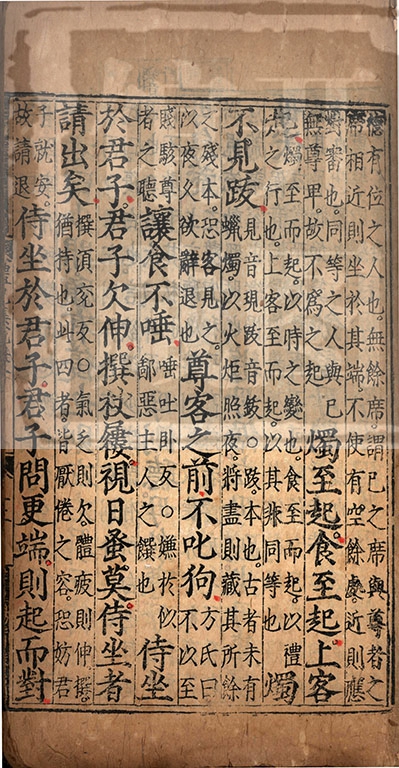 德有位之人也。無餘席。謂己之席與尊者之
席相近則坐於其端不使有空餘處。近則應
對審也。同等之人與己
無尊卑。故不爲之起
燭至起。食至起。上客
起
燭至而起。以時之變也。食至而起。以禮
之行也。上客至而起。以其非同等也
燭
不見跋
見音現跋音鈸○跋。本也。古者未有
蠟燭。以火炬照夜。將盡則藏其所餘
之殘本。恐客見之。
以夜久欲辭退也
尊客之前。不叱狗
方氏曰
不以至
賤駭尊
者之聽
讓食不唾
唾吐卧反○嫌於似
鄙惡主人之饌也
侍坐
於君子。君子欠伸。撰杖屨。視日蚤莫。侍坐者
請出矣
撰湏兗反○氣乏則欠。體疲則伸。撰。
猶持也。此四者。皆厭倦之容。恐妨君
子就安。
故請退
侍坐於君子。君子問更端。則起而對